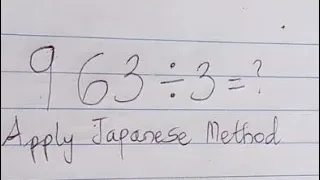 963÷3=?
Apply Japanese Method